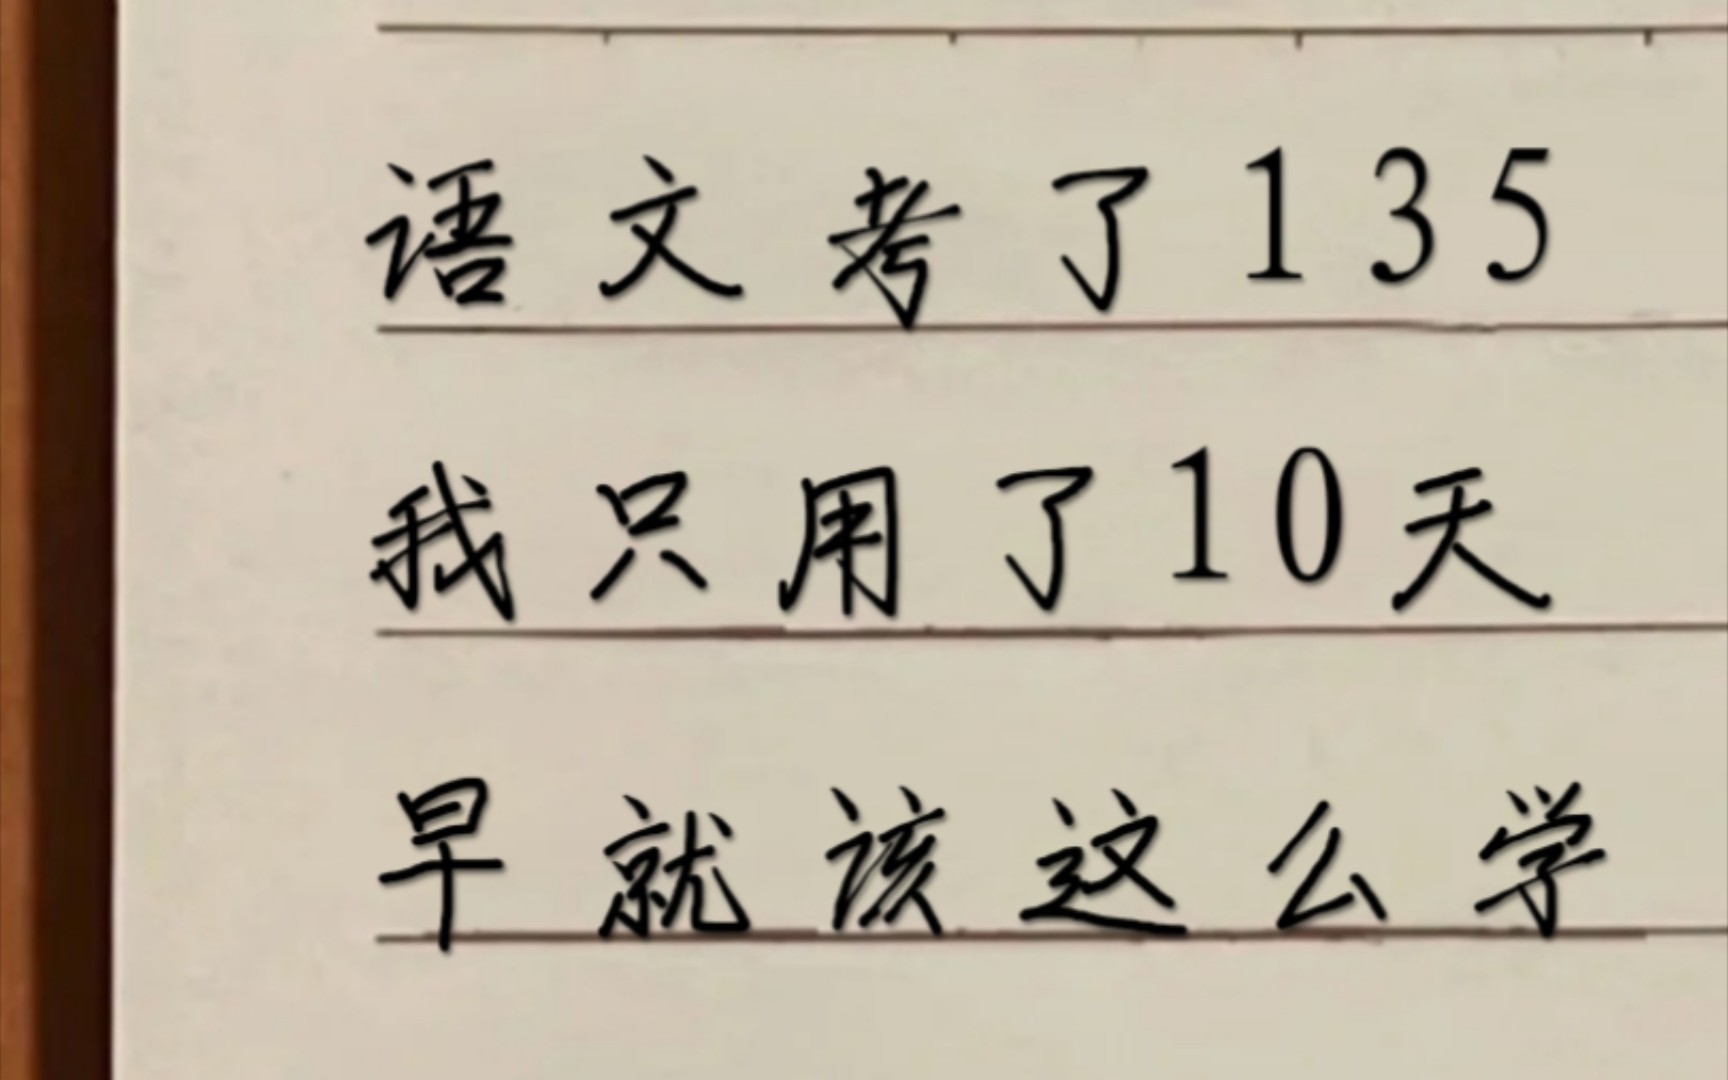 语文考了135
我只用了10天
早就该这么学